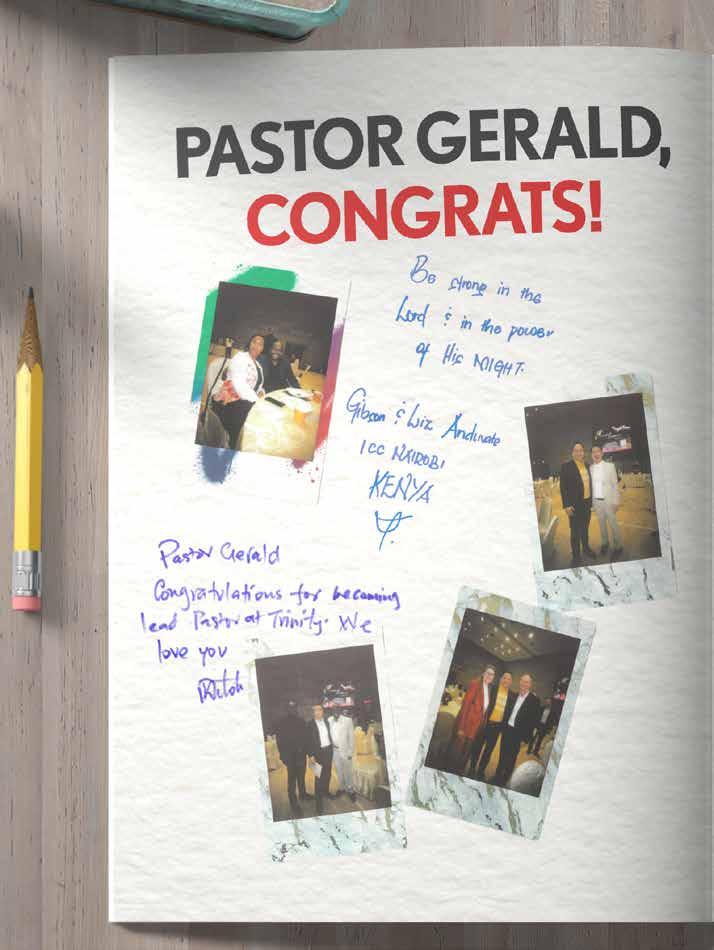 PASTOR GERALD,
CONGRATS!
Be strong in the
Lord & in the power
of His MIGHT.
Gibson & Liz
ICC NAIROBI
KENYA
Pastor Gerald
Congratulations for becoming
lead Pastor at Trinity. We
love you